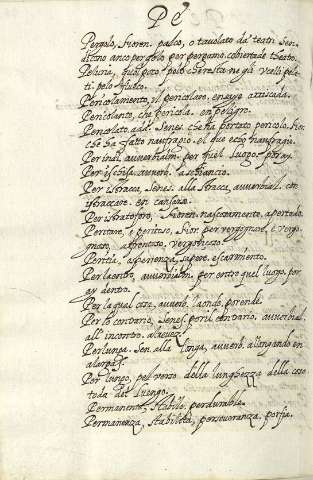 Pe
Pergolo, Fioren. palco, o tavolato da teatri. Sen.
dicono anco pergolo per pergamo. cobierta de theatro.
Peluria, quel poco pelo che resta ne già ucelli pela-
ti. pelo
Pericolamento, il pericolare. ensayo arriscado.
Pericolante, che pericola. en peligro.
Pericolato add. Senes. che ha portato pericolo. Fior.
che ha fatto naufragio. el que echo naufragio.
Per indi, auverbialm. per quel luogo. por ay.
Per ischisa. auverb. a schiancio.
Per istracca, Senes. alla stracca, auverbial. con
istraccare. en cansando.
Per istrafoforo, Fioren. nascosamente, a pertodo.
Peritare, e peritoso, Fior. per vergognare, e vergo-
gnoso, affrontoso, vergonçoso.
Peritia, esperienza, sapere. escarmiento.
Per la entro, auverbialm. per entro quel luogo. por
ay dentro.
Per la qual cose. auverb. laonde. por ende.
Per lo contrario, Senes. poril contrario. auverbial.
all' incontro. al reves.
Per lunga. Sen. alla longa, auverb. alongando en
alargas.
Per lungo, pel verso della lunghezza della cosa
toda del luengo.
Permanente, stabile. perdurable.
Permanenza, stabilità, perseveranza. porfia.